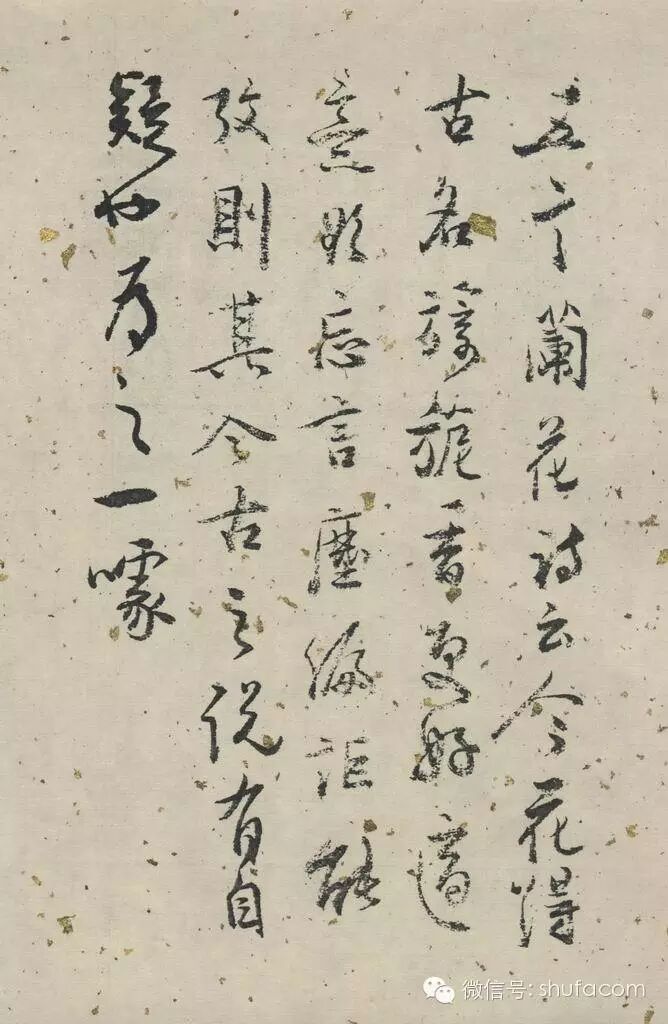 朱子蘭花詩云今花得
古名旖旎香更好適
意欲忘言塵編詎能
攷則其今古之説有自
疑也為之一噱
微信号: shufacom